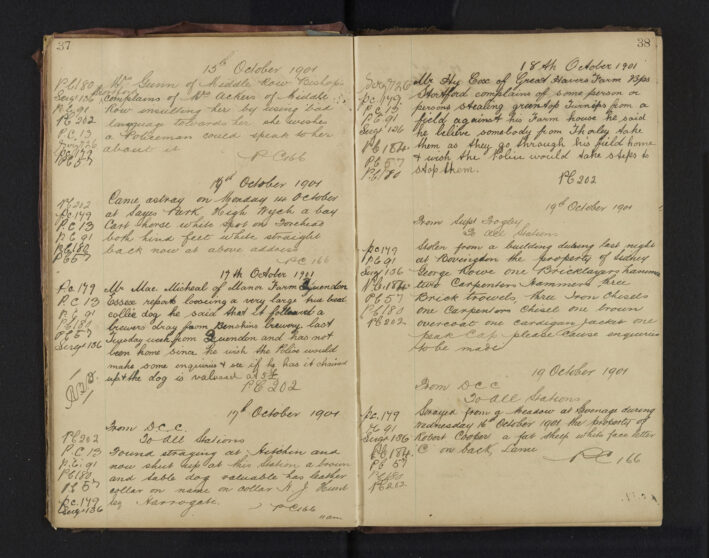 37
15th October 1901
P.C 180 Mrs Gunn of Middle Row Bishop
Sergt 136 complains of Mrs Achers of Middle
P.C. 91 Row insulting her by using bad
P.C 202 language towards her she wishes
P.C. 13 a Policeman could speak to her
Sergt 26 about it
P.C 149
P.C 57 PC 166
17th October 1901
P.C 212 Came astray on Monday 14 October
P.c. 149 at Sayes Park, High Wych a bay
P.C 13 Cart horse white spot on Forehead
P.C 91 both hind feet white straight
P.C 180 back now at above address
P.C 57 PC 166
17th October 1901
P.C. 179 Mr Mac Micheal of Manor Farm Quendon
P.C 13 Essex report loosing a very large true bred
P.C 91 collie dog he said that it followed a
P.C 180 brewers dray from Benskins brewery last
P.C 57 Tuesday week from Quendon and has not
Sergt 136 been home since he wish the Police would
make some enquiries & see if he has it chained
up & the dog is valused at
PC 202
17th October 1901
From D.C.C.
P.C 202 To All Stations
P.C 13 Found straying at Hitchin and
P.C. 91 now shut up at this Station a brown
P.C 180 and sable dog valuable has leather
P.C 57 collar on name on collar A. J. Hunt
P.c. 149 Harrogate.
Sergt 136 PC 166
11 am
38
18th October 1901
Sergt 26 Mr Hy Cox of Great Havers Farm Bps
P.c. 149 Stortford complains of some person or
P.C. 13 persons stealing green top Turnips from a
P.C 91 field against his Farm house he said
Sergt 136 he believe somebody from Thorley take
P.C 184 them as they go through his field home
P.C 57 & wish the Police would take steps to
P.C 180 stop them.
PC 202
19th October 1901
From Supt Frogley
To All Stations
P.c 149 Stolen from a building during last night
P.C 91 at Bovingdon the property of Sidney
Sergt 136 George Rowe one Bricklayers hammer
P.C 184 two Carpenters Hammers three
P.C 57 Brick trowels, three Iron Chisels
P.C 180 one Carpenters Chisel one brown
P.C 202 overcoat one cardigan Jacket one
peak Cap please cause enquiries
to be made
19 October 1901
From D.C.C
To All Stations
P.c. 149 Strayed from a meadow at Stevenage during
P.C 91 Wednesday 16th October 1901 the property of
Sergt 136 Robert Cooper a fat sheep white face letter
P.C 184 C on back, Lame
P.C 57 PC 166
P.C 180
P.C 212